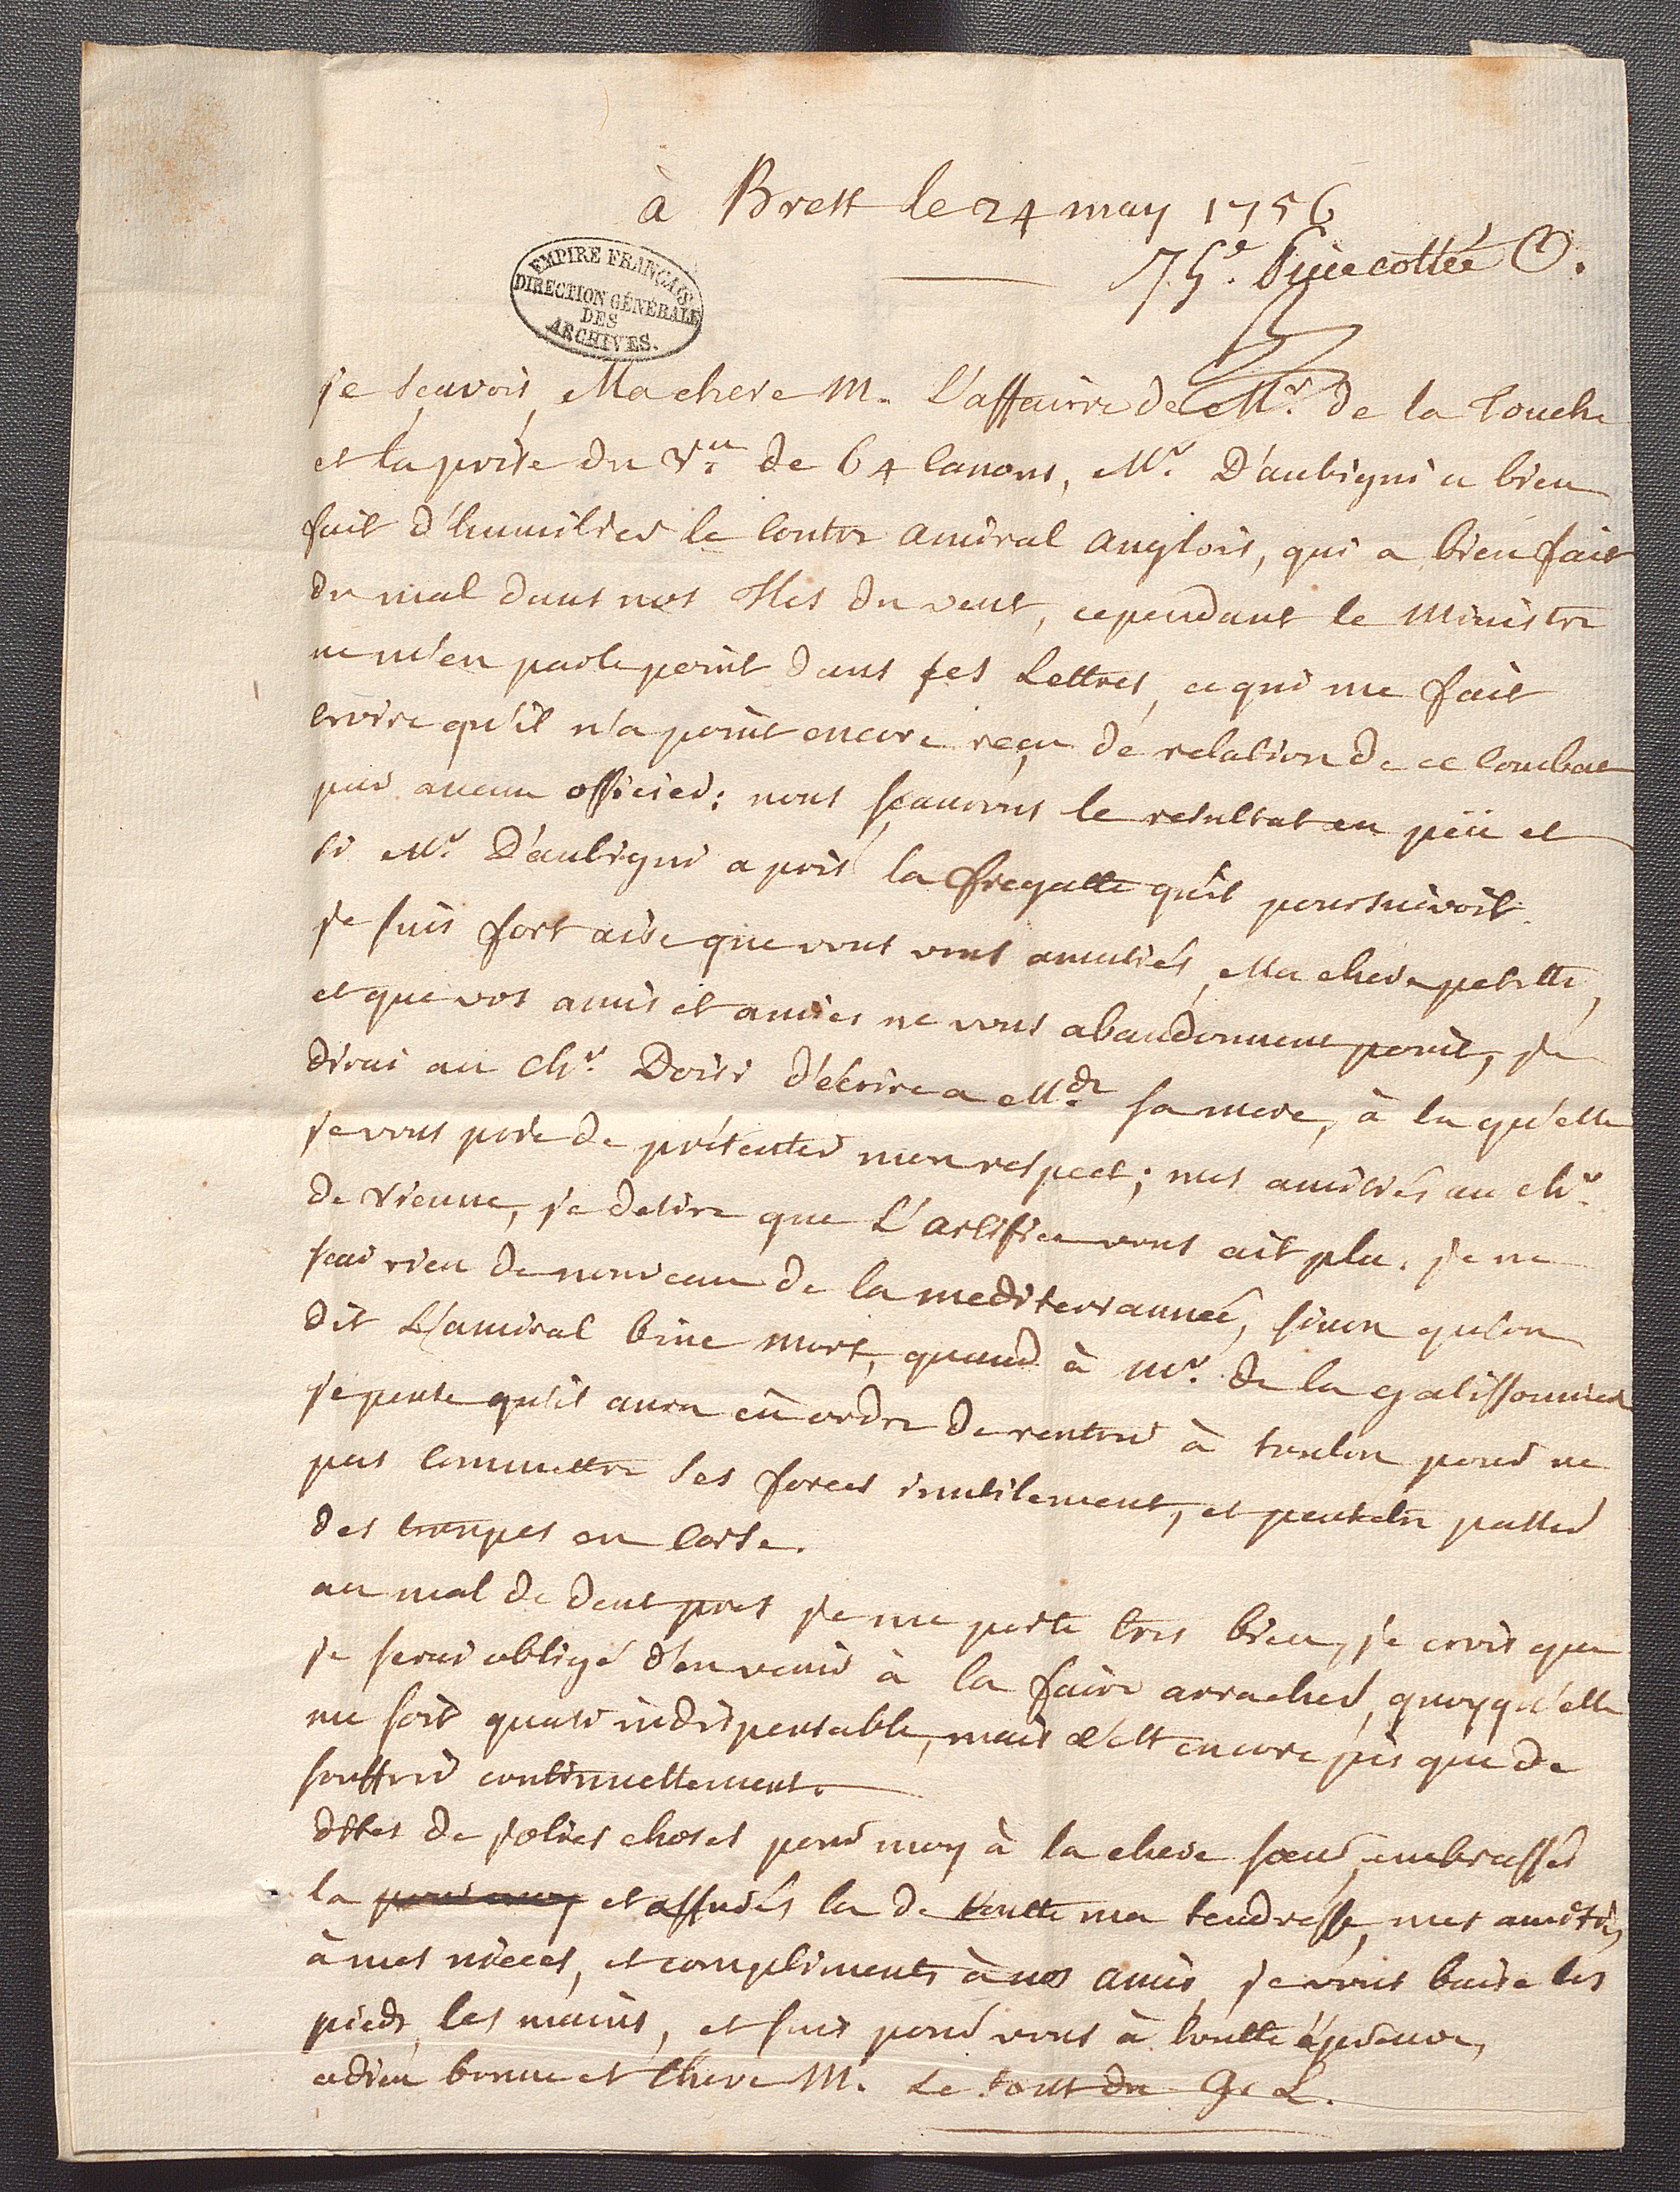 à Brest le 24 may 1756
75e. Piece cottée O.
EMPIRE FRANÇAIS
DIRECTION GÉNÉRALE
DES
ARCHIVES.
je sçavois, Ma chere M. L'affaire de Mr. de la touche
et la prise du Veau de 64 canons, Mr. D'aubigni a bien
fait d'humilier le contre amiral anglois, qui a bien fait
du mal dans nos Isles du vent, cependant le Ministre
ne m'en parle point dans ses Lettres, ce qui me fait
croire qu'il n'a point encore reçu de relation de ce combat
par aucun officier; nous sçaurons le resultat en peu et
si Mr. D'aubigni a pris la fregatte qu'il poursuivoit.
je suis fort aise que vous vous amusiés, Ma chere petitte,
et que vos amis et amies ne vous abandonnent point, je
dirai au Chr. Doisi d'écrire a Mde. sa mere, à la qu'elle
je vous prie de présenter mon respect; mes amitiés au chr.
de Vienne, je desire que L'artifice vous ait plu. je ne
sçai rien de nouveau de la mediterrannée, sinon qu'on
dit L'amiral bine mort, quand à Mr. de la galissonnier
je pense qu'il aura eû ordre de rentrer à toulon pour ne
pas commettre ses forces inutilement, et peutetre passer
des trouppes en Corse.
au mal de dent pres je me porte tres bien, je crois que
je serai obligé d'en venir à la faire arracher, quoyqu'elle
me soit quasi indispensable, mais c'est encore pis que de
souffrir continuellement.
dites de jolies choses pour moy à la chere soeur, embrassés
la pour moy et assurés la de toutte ma tendresse, mes amitiés
à mes nieces, et compliments à nos amis, je vous baise les
pieds, les mains, et suis pour vous à toutte épreuve,
adieu bonne et Chere M. Le tout du Gr L.